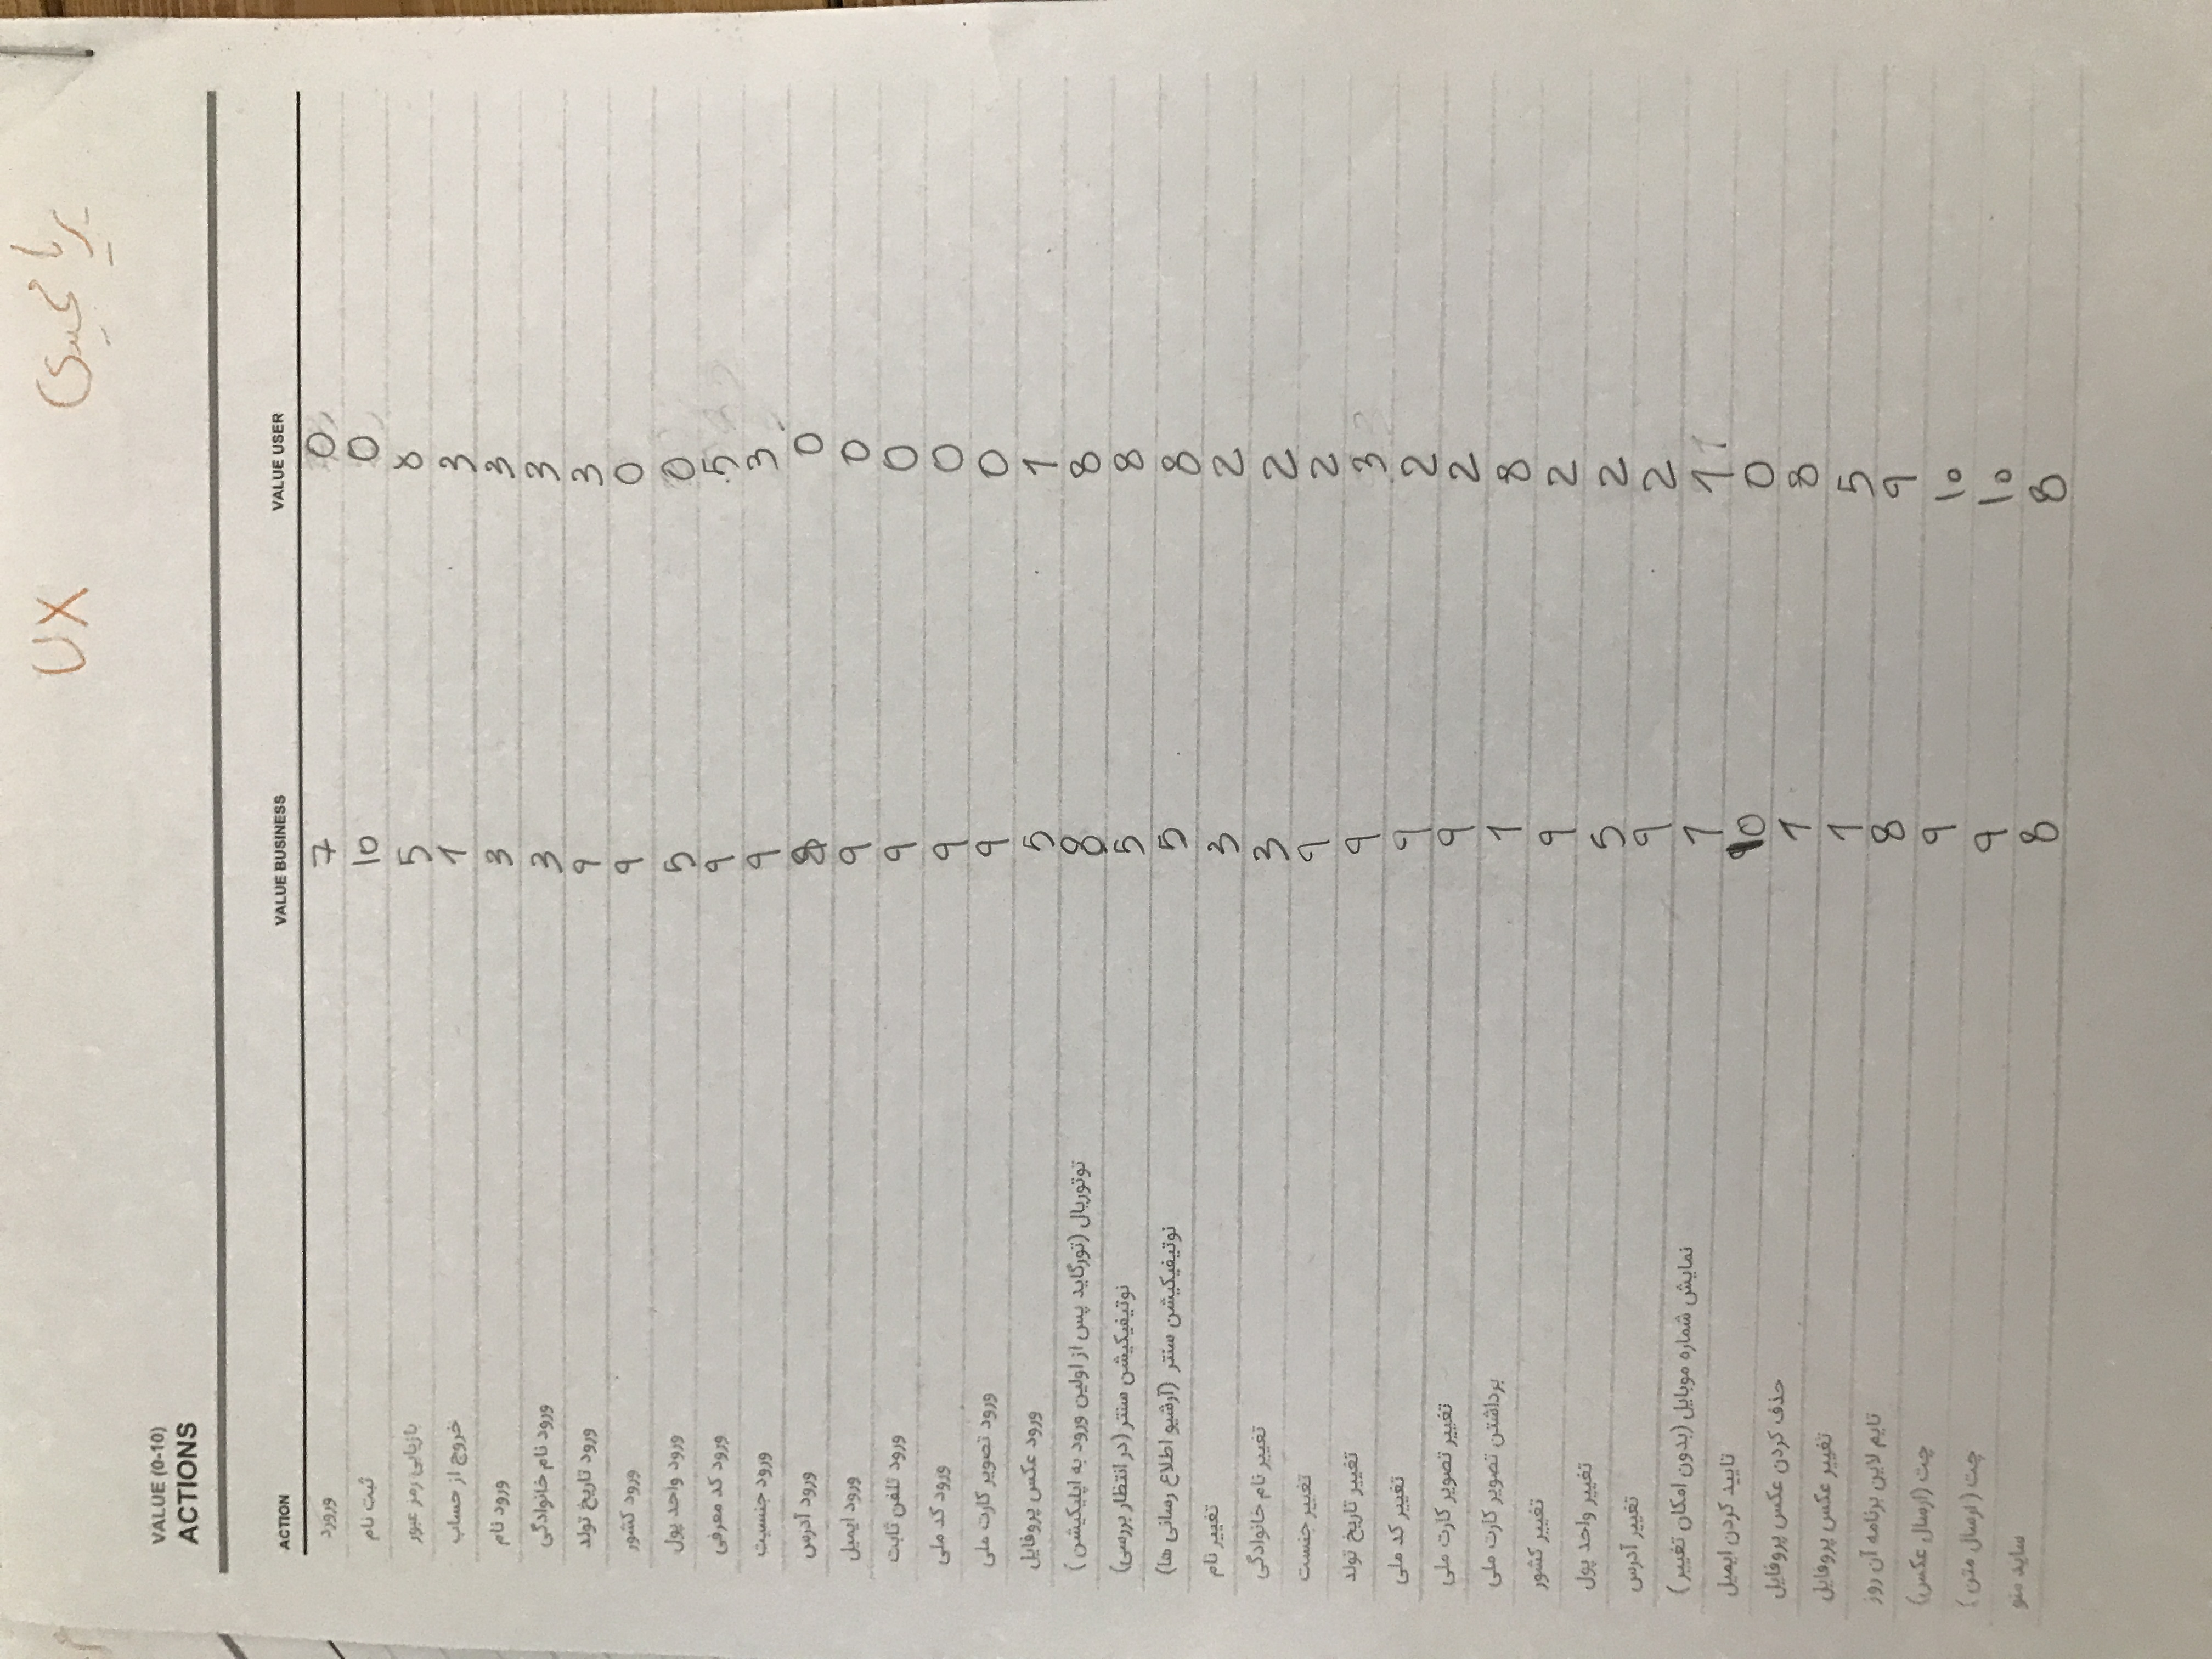 UX
VALUE (0-10)
ACTIONS
ACTION VALUE BUSINESS VALUE USER
ورود 7 0
ثبت نام 10 0
بازیابی رمز عبور 5 8
خروج از حساب 1 3
ورود نام 3 3
ورود نام خانوادگی 3 3
ورود تاریخ تولد 9 3
ورود کشور 9 0
ورود واحد پول 5 0
ورود کد معرفی 9 5
ورود جنسیت 9 3
ورود آدرس 8 0
ورود ایمیل 9 0
ورود تلفن ثابت 9 0
ورود کد ملی 9 0
ورود تصویر کارت ملی 9 0
ورود عکس پروفایل 5 1
توتوریال (تورگاید پس از اولین ورود به اپلیکیشن ) 8 8
نوتیفیکیشن سنتر (در انتظار بررسی) 5 8
نوتیفیکیشن سنتر (آرشیو اطلاع رسانی ها) 5 8
تغییر نام 3 2
تغییر نام خانوادگی 3 2
تغییر جنست 9 2
تغییر تاریخ تولد 9 3
تغییر کد ملی 9 2
تغییر تصویر کارت ملی 9 2
برداشتن تصویر کارت ملی 1 8
تغییر کشور 9 2
تغییر واحد پول 5 2
تغییر آدرس 9 2
نمایش شماره موبایل (بدون امکان تغییر ) 1 1
تایید کردن ایمیل 10 0
حذف کردن عکس پروفایل 1 8
تغییر عکس پروفایل 1 5
تایم لاین برنامه آن روز 8 9
چت (ارسال عکس) 9 10
چت ( ارسال متن ) 9 10
ساید منو 8 8